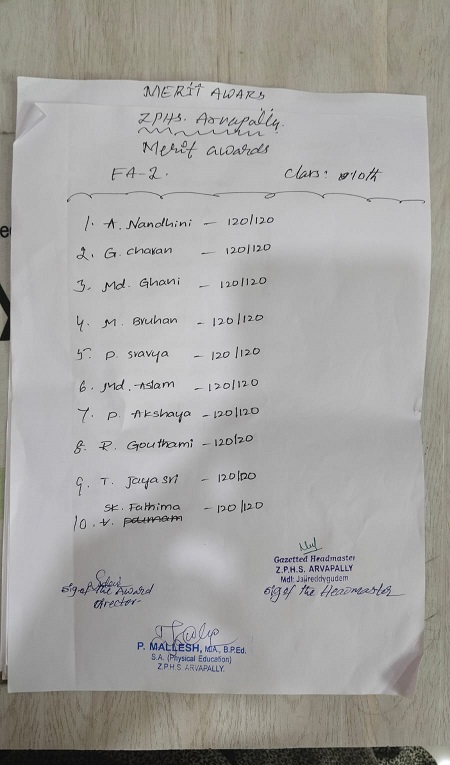 MERIT AWARS
ZPHS. Arvapally.
Merit awards
FA-2. Class: 10th
1. A. Nandhini - 120/120
2. G. charan - 120/120
3. Md. Ghani - 120/120
4. M. Bruhan - 120/120
5. P. sravya - 120/120
6. Md. Aslam - 120/120
7. P. Akshaya - 120/120
8. R. Gouthami - 120/20
9. T. Jayasri - 120/120
SK. Fathima - 120/120
10. v.
Gazetted Headmaster
Z.P.H.S. ARVAPALLY
Mdl: Jajireddygudem
sig of the Award sig of the Headmaster
Director
P. MALLESH, M.A., B.P.Ed.
S.A. (Physical Education)
Z.P.H.S. ARVAPALLY.